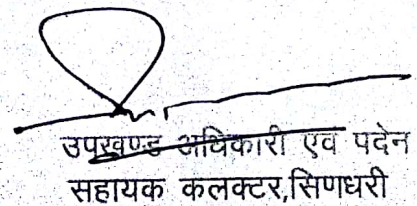 उपखण्ड अधिकारी एव पदेन
सहायक कलक्टर,सिणधरी